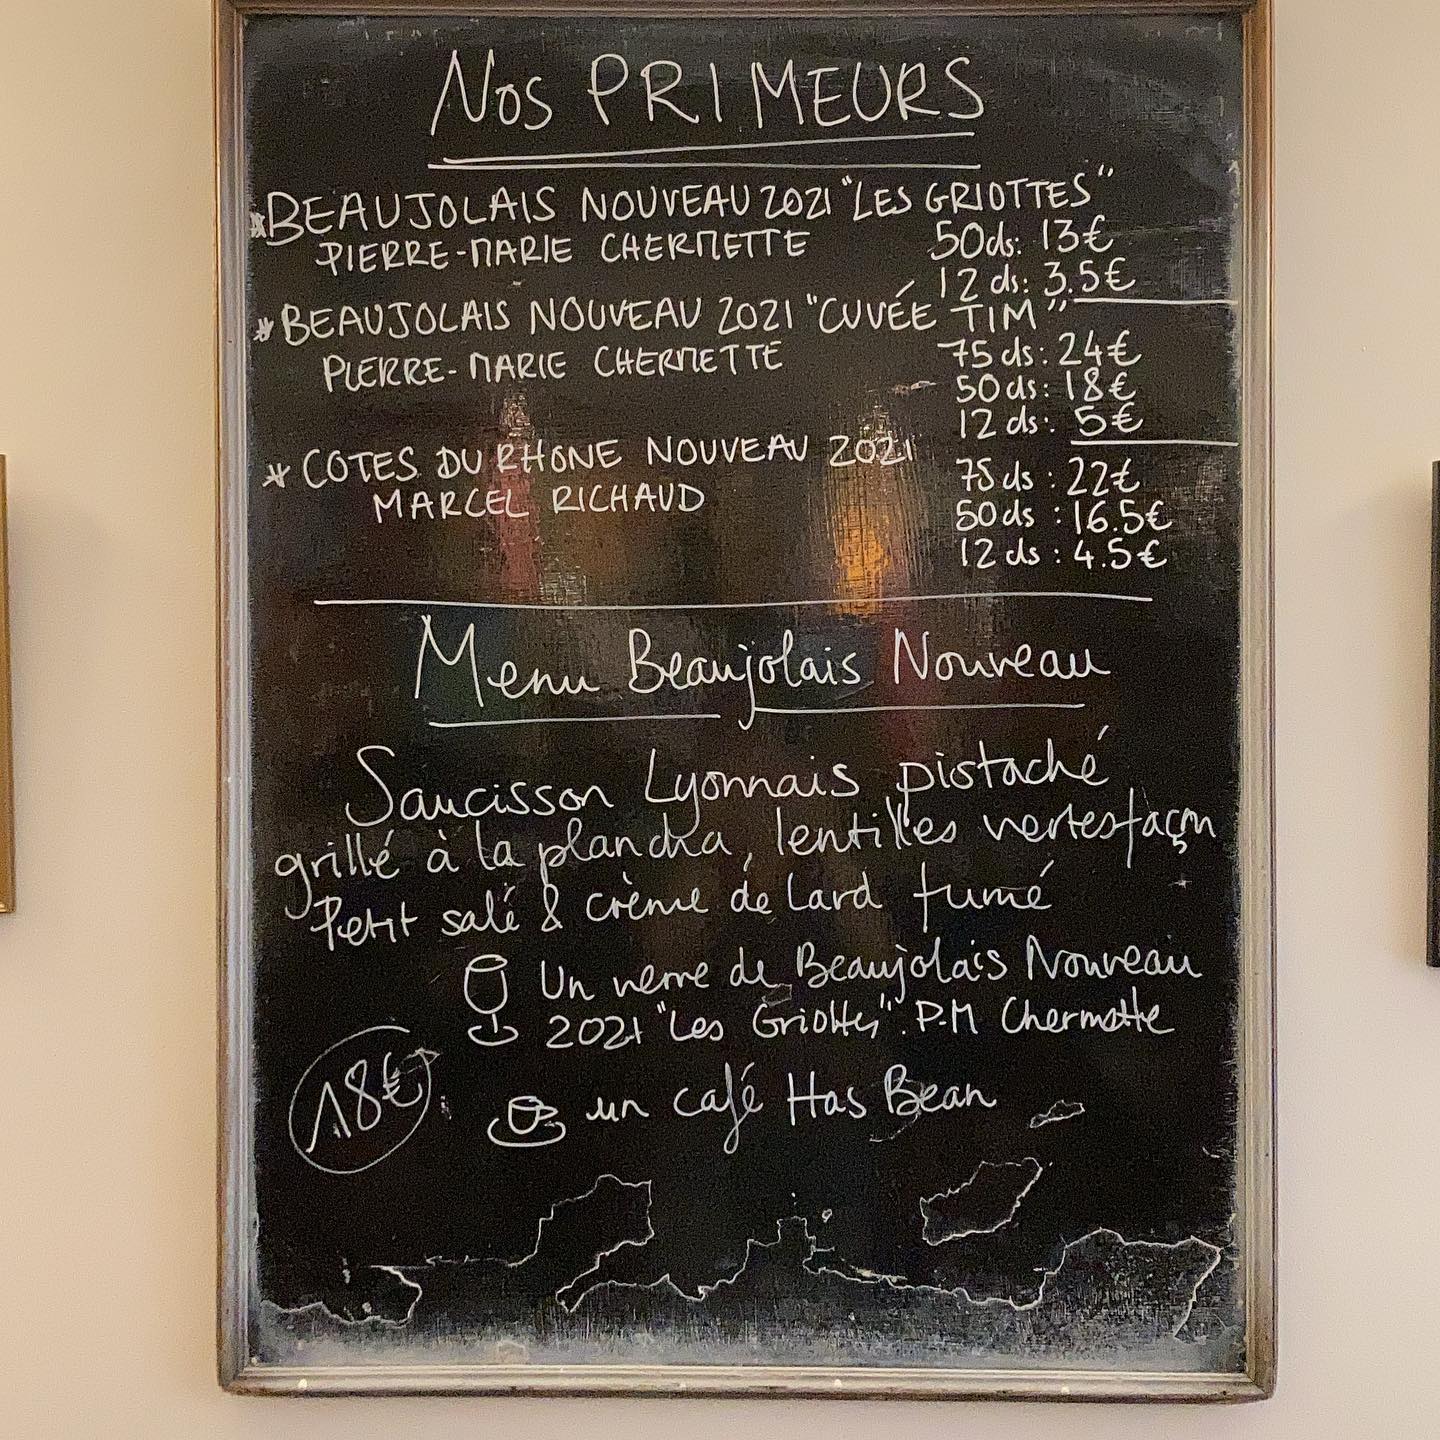 Nos PRIMEURS
* BEAUJOLAIS NOUVEAU 2021 "LES GRIOTTES"
PIERRE-MARIE CHERMETTE 50cls: 13€
12 cls: 3.5€
* BEAUJOLAIS NOUVEAU 2021 "CUVÉE TIM"
PIERRE-MARIE CHERMETTE 75 cls: 24€
50 cls: 18€
12 cls: 5€
* COTES DU RHONE NOUVEAU 2021
MARCEL RICHAUD 75 cls : 22€
50 cls : 16.5€
12 cls : 4.5€
Menu Beaujolais Nouveau
Saucisson Lyonnais pistaché
grillé à la plancha, lentilles vertes façon
Petit salé & crème de Lard fumé
Un verre de Beaujolais Nouveau
2021 "Les Griottes". P-M Chermette
18€ un café Has Bean